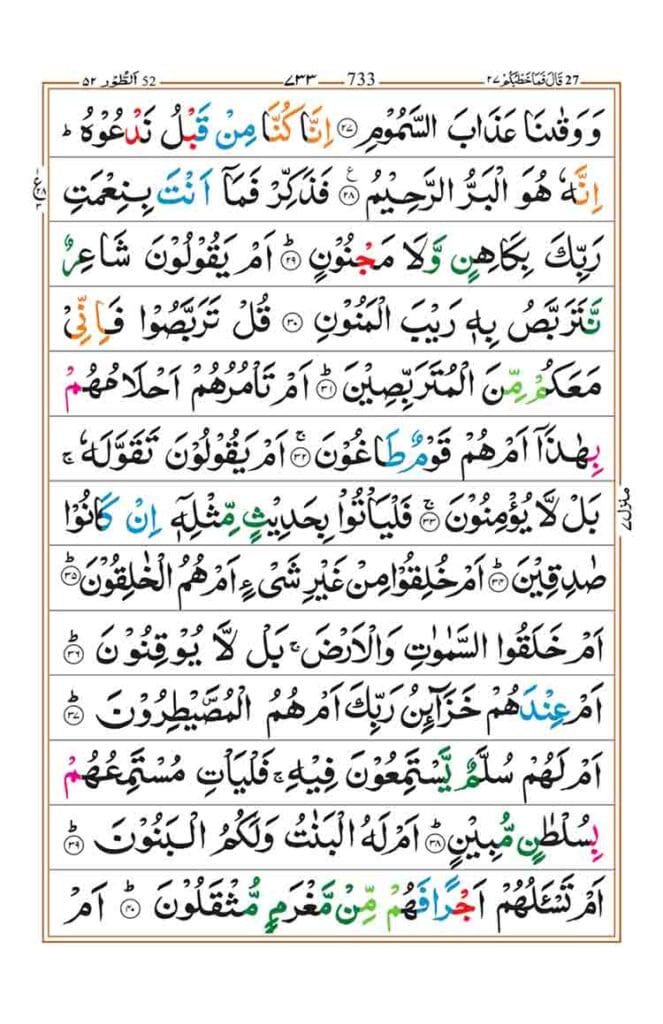 27 قَالَ فَمَا خَطْبُكُمْ ٢٧ 733 ٧٣٣ 52 اَلطُّوْر ٥٢
وَ وَقٰىنَا عَذَابَ السَّمُوْمِ ﴿٢٧﴾ اِنَّا كُنَّا مِنْ قَبْلُ نَدْعُوْهُ ؕ
اِنَّهٗ هُوَ الْبَرُّ الرَّحِيْمُ ﴿٢٨﴾ ع فَذَكِّرْ فَمَاۤ اَنْتَ بِنِعْمَتِ
رَبِّكَ بِكَاهِنٍ وَّلَا مَجْنُوْنٍ ؕ﴿٢٩﴾ اَمْ يَقُوْلُوْنَ شَاعِرٌ
نَّتَرَبَّصُ بِهٖ رَيْبَ الْمَنُوْنِ ﴿٣٠﴾ قُلْ تَرَبَّصُوْا فَاِنِّيْ
مَعَكُمْ مِّنَ الْمُتَرَبِّصِيْنَ ؕ﴿٣١﴾ اَمْ تَاْمُرُهُمْ اَحْلَامُهُمْ
بِهٰذَاۤ اَمْ هُمْ قَوْمٌ طَاغُوْنَ ۚ﴿٣٢﴾ اَمْ يَقُوْلُوْنَ تَقَوَّلَهٗ ۚ
بَلْ لَّا يُؤْمِنُوْنَ ۚ﴿٣٣﴾ فَلْيَاْتُوْا بِحَدِيْثٍ مِّثْلِهٖۤ اِنْ كَانُوْا
صٰدِقِيْنَ ؕ﴿٣٤﴾ اَمْ خُلِقُوْا مِنْ غَيْرِ شَيْءٍ اَمْ هُمُ الْخٰلِقُوْنَ ؕ﴿٣٥﴾
اَمْ خَلَقُوا السَّمٰوٰتِ وَالْاَرْضَ ۚ بَلْ لَّا يُوْقِنُوْنَ ؕ﴿٣٦﴾
اَمْ عِنْدَهُمْ خَزَآئِنُ رَبِّكَ اَمْ هُمُ الْمُصَۜيْطِرُوْنَ ؕ﴿٣٧﴾
اَمْ لَهُمْ سُلَّمٌ يَّسْتَمِعُوْنَ فِيْهِ ۚ فَلْيَاْتِ مُسْتَمِعُهُمْ
بِسُلْطٰنٍ مُّبِيْنٍ ؕ﴿٣٨﴾ اَمْ لَهُ الْبَنٰتُ وَلَكُمُ الْبَنُوْنَ ؕ﴿٣٩﴾
اَمْ تَسْـَٔلُهُمْ اَجْرًا فَهُمْ مِّنْ مَّغْرَمٍ مُّثْقَلُوْنَ ؕ﴿٤٠﴾ اَمْ
منزل ٧